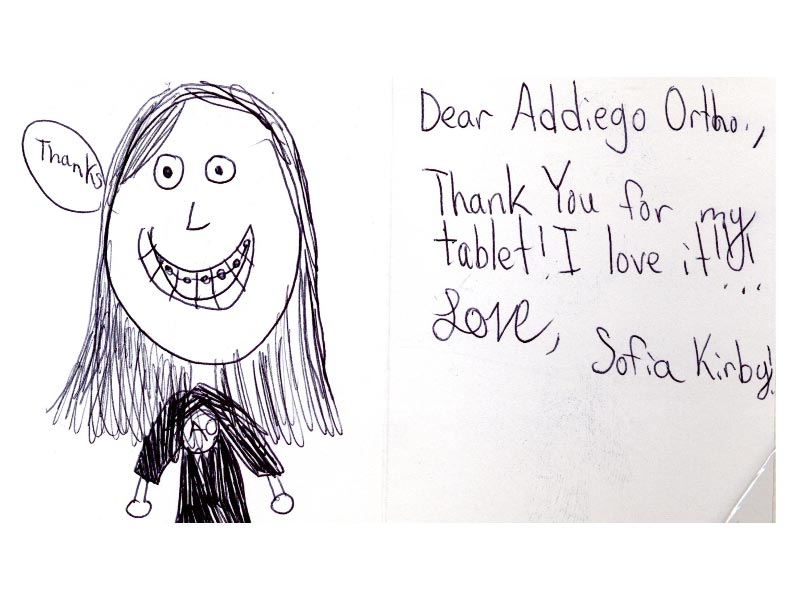 Thanks
AO
Dear Addiego Ortho.,
Thank You for my
tablet! I love it!!!!
Love,
Sofia Kirby!